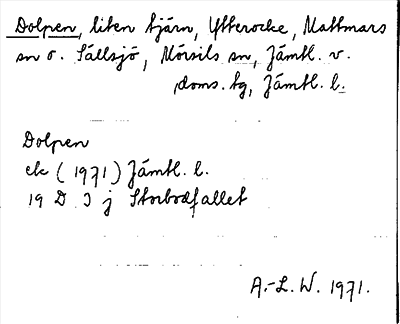 Dolpen, liten tjärn, Ytterocke, Mattmars
sn o. Sällsjö, Mörsils sn, Jämtl. v.
doms. tg, Jämtl. l.
Dolpen
ek (1971) Jämtl. l.
19 D 3 j Storbodfallet
A.-L. W. 1971.